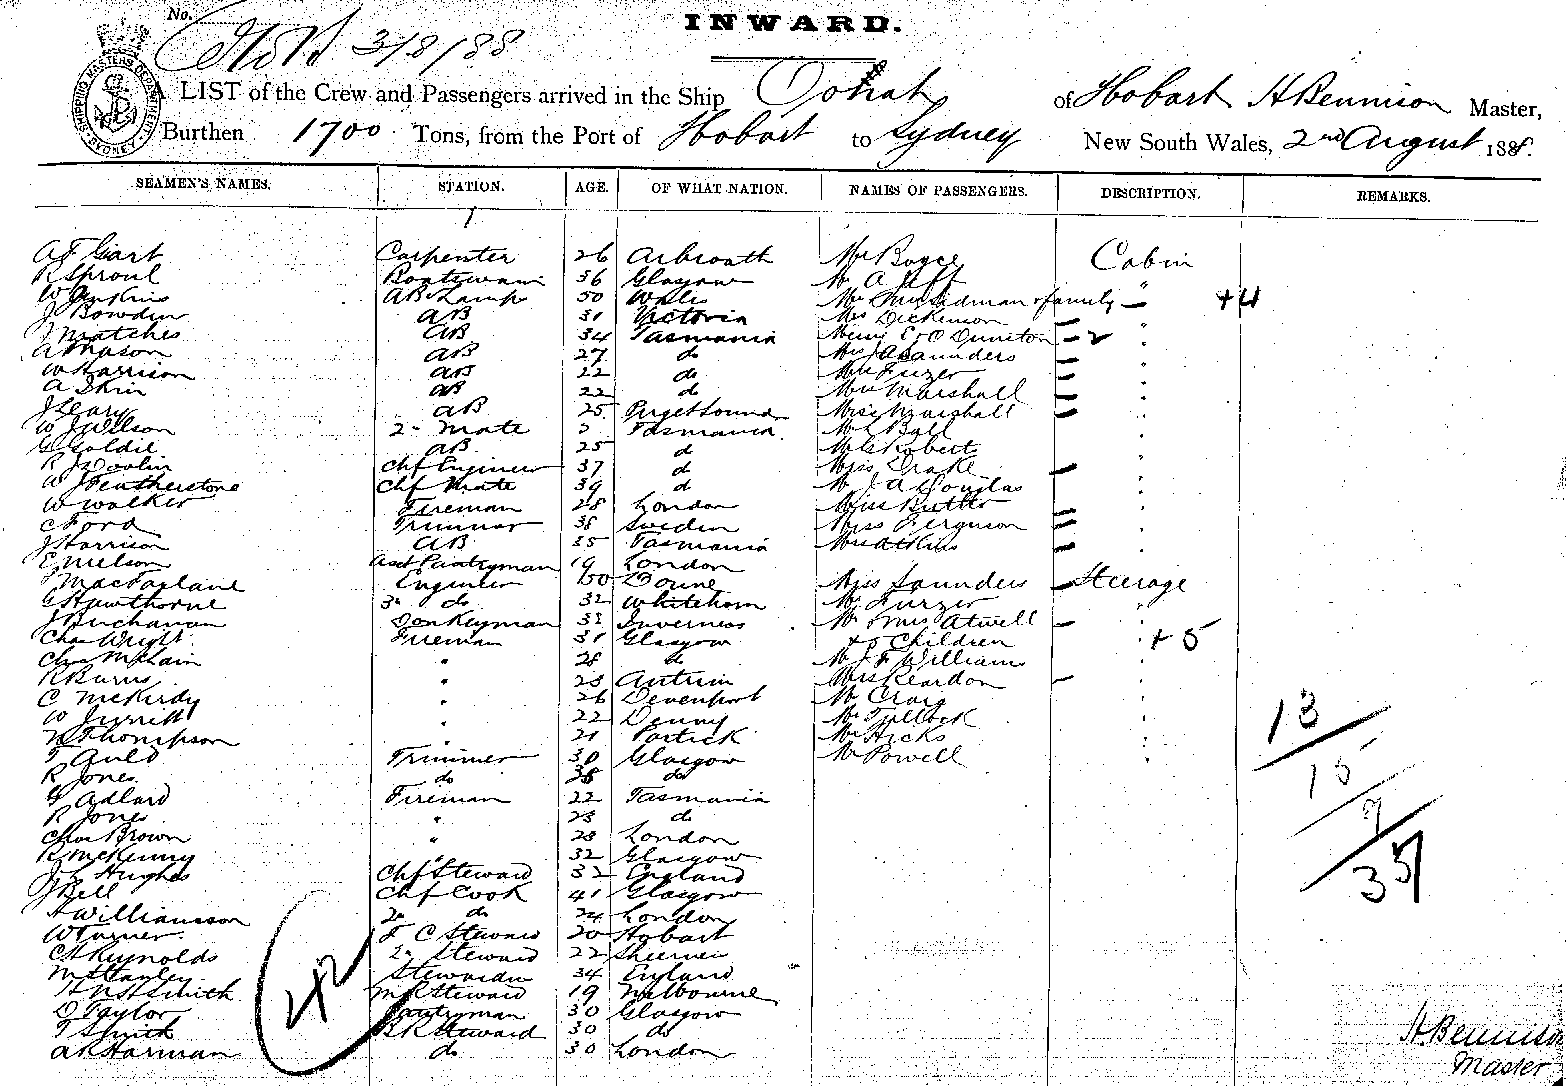 INWARD.
No.
3/8/88
SHIPPING MASTERS DEPARTMENT SYDNEY
A LIST of the Crew and Passengers arrived in the Ship Oonah of Hobart H Bennison Master,
Burthen 1700 Tons, from the Port of Hobart to Sydney New South Wales, 2nd August 1888.
SEAMEN'S NAMES. STATION. AGE. OF WHAT NATION. NAMES OF PASSENGERS. DESCRIPTION. REMARKS.
Carpenter 26 Arbroath Mr Boyce Cabin
R Sproul Boatswain 36 Glasgow Mr A Juff "
W Jenkins AB & Lamps 50 Wales Mr & Mrs Sidman & family " +4
J Bowden AB 31 Victoria Mrs Dickinson "
J Matches AB 34 Tasmania E & O Dunston 2 "
A Mason AB 27 do Saunders "
W Harrison AB 22 do Mrs Furzer "
A Skin AB 22 do Mrs Marshall "
J Leary AB 25 Puget Sound Miss Marshall "
W J Wilson 2nd Mate Tasmania Mr L Ball "
G Goldie AB 25 d Roberts "
R J Doolin Chf Engineer 37 d Miss Drake "
W J Featherstone Chf Mate 39 d Mr J A Douglas "
W Walker Fireman 28 London Miss Butler "
C Ford Trimmer 38 Sweden Miss Ferguson "
J Harrison AB 35 Tasmania Mrs Atkins "
E Nelson Asst Pantryman 19 London
J MacFarlane Engineer 50 Doune Miss Saunders Steerage
G Hawthorne 3rd do 32 Whithorn Mr Furzer "
J Buchanan Donkeyman 32 Inverness Mr & Mrs Atwell "
Chas Wright Fireman 31 Glasgow & 5 Children " + 5
Chas McLain " 28 do Mr J F Williams "
R Burns " 23 Antrim Mrs Reardon "
C McKirdy " 26 Devenport Mr Craig "
W " 22 Denny Mr Tullock "
N Thompson " 21 Partick Mr Hicks "
T Auld Trimmer 30 Glasgow Mr Powell "
R Jones do 38 do
G Adlard Fireman 22 Tasmania
R Jones " 23 do
Chas Brown " 23 London
R McKenny " 32 Glasgow
J L Hughes Chf Steward 32 England
J Bell Chf Cook 41 Glasgow
H Williamson 2nd do 24 London
W Turner F C Steward 20 Hobart
C H Reynolds 2nd Steward 22
M Stanley Stewardess 34 England
H N H Smith M R Steward 19 Melbourne
D Taylor Pantryman 30 Glasgow
T Smith B R Steward 30 do
A R Harman do 30 London
42
13
15
7
35
H Bennison
Master